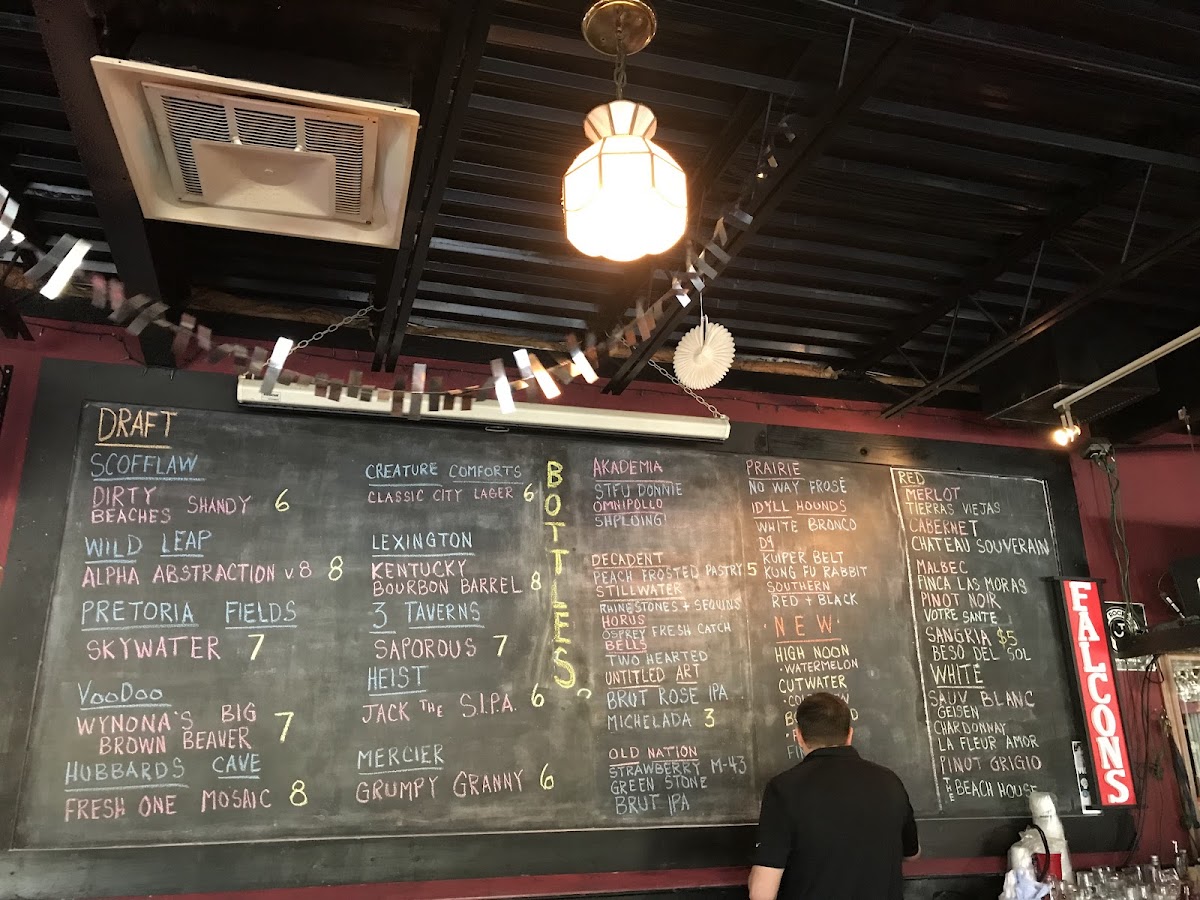 DRAFT
SCOFFLAW
DIRTY
BEACHES SHANDY 6
WILD LEAP
ALPHA ABSTRACTION v.8 8
PRETORIA FIELDS
SKYWATER 7
VOODOO
WYNONA'S BIG
BROWN BEAVER 7
HUBBARDS CAVE
FRESH ONE MOSAIC 8
CREATURE COMFORTS
CLASSIC CITY LAGER 6
LEXINGTON
KENTUCKY
BOURBON BARREL 8
3 TAVERNS
SAPOROUS 7
HEIST
JACK THE S.I.P.A. 6
MERCIER
GRUMPY GRANNY 6
BOTTLES
AKADEMIA
STFU DONNIE
OMNIPOLLO
SHPLOING!
DECADENT
PEACH FROSTED PASTRY 5
STILLWATER
RHINESTONES + SEQUINS
HORUS
OSPREY FRESH CATCH
BELLS
TWO HEARTED
UNTITLED ART
BRUT ROSE IPA
MICHELADA 3
OLD NATION
STRAWBERRY M-43
GREEN STONE
BRUT IPA
PRAIRIE
NO WAY FROSÉ
IDYLL HOUNDS
WHITE BRONCO
D9
KUIPER BELT
KUNG FU RABBIT
SOUTHERN
RED + BLACK
NEW
HIGH NOON
·WATERMELON
CUTWATER
RED
MERLOT
TIERRAS VIEJAS
CABERNET
CHATEAU SOUVERAIN
MALBEC
FINCA LAS MORAS
PINOT NOIR
VOTRE SANTE
SANGRIA $5
BESO DEL SOL
WHITE
SAUV BLANC
GEISEN
CHARDONNAY
LA FLEUR AMOR
PINOT GRIGIO
THE BEACH HOUSE
FALCONS